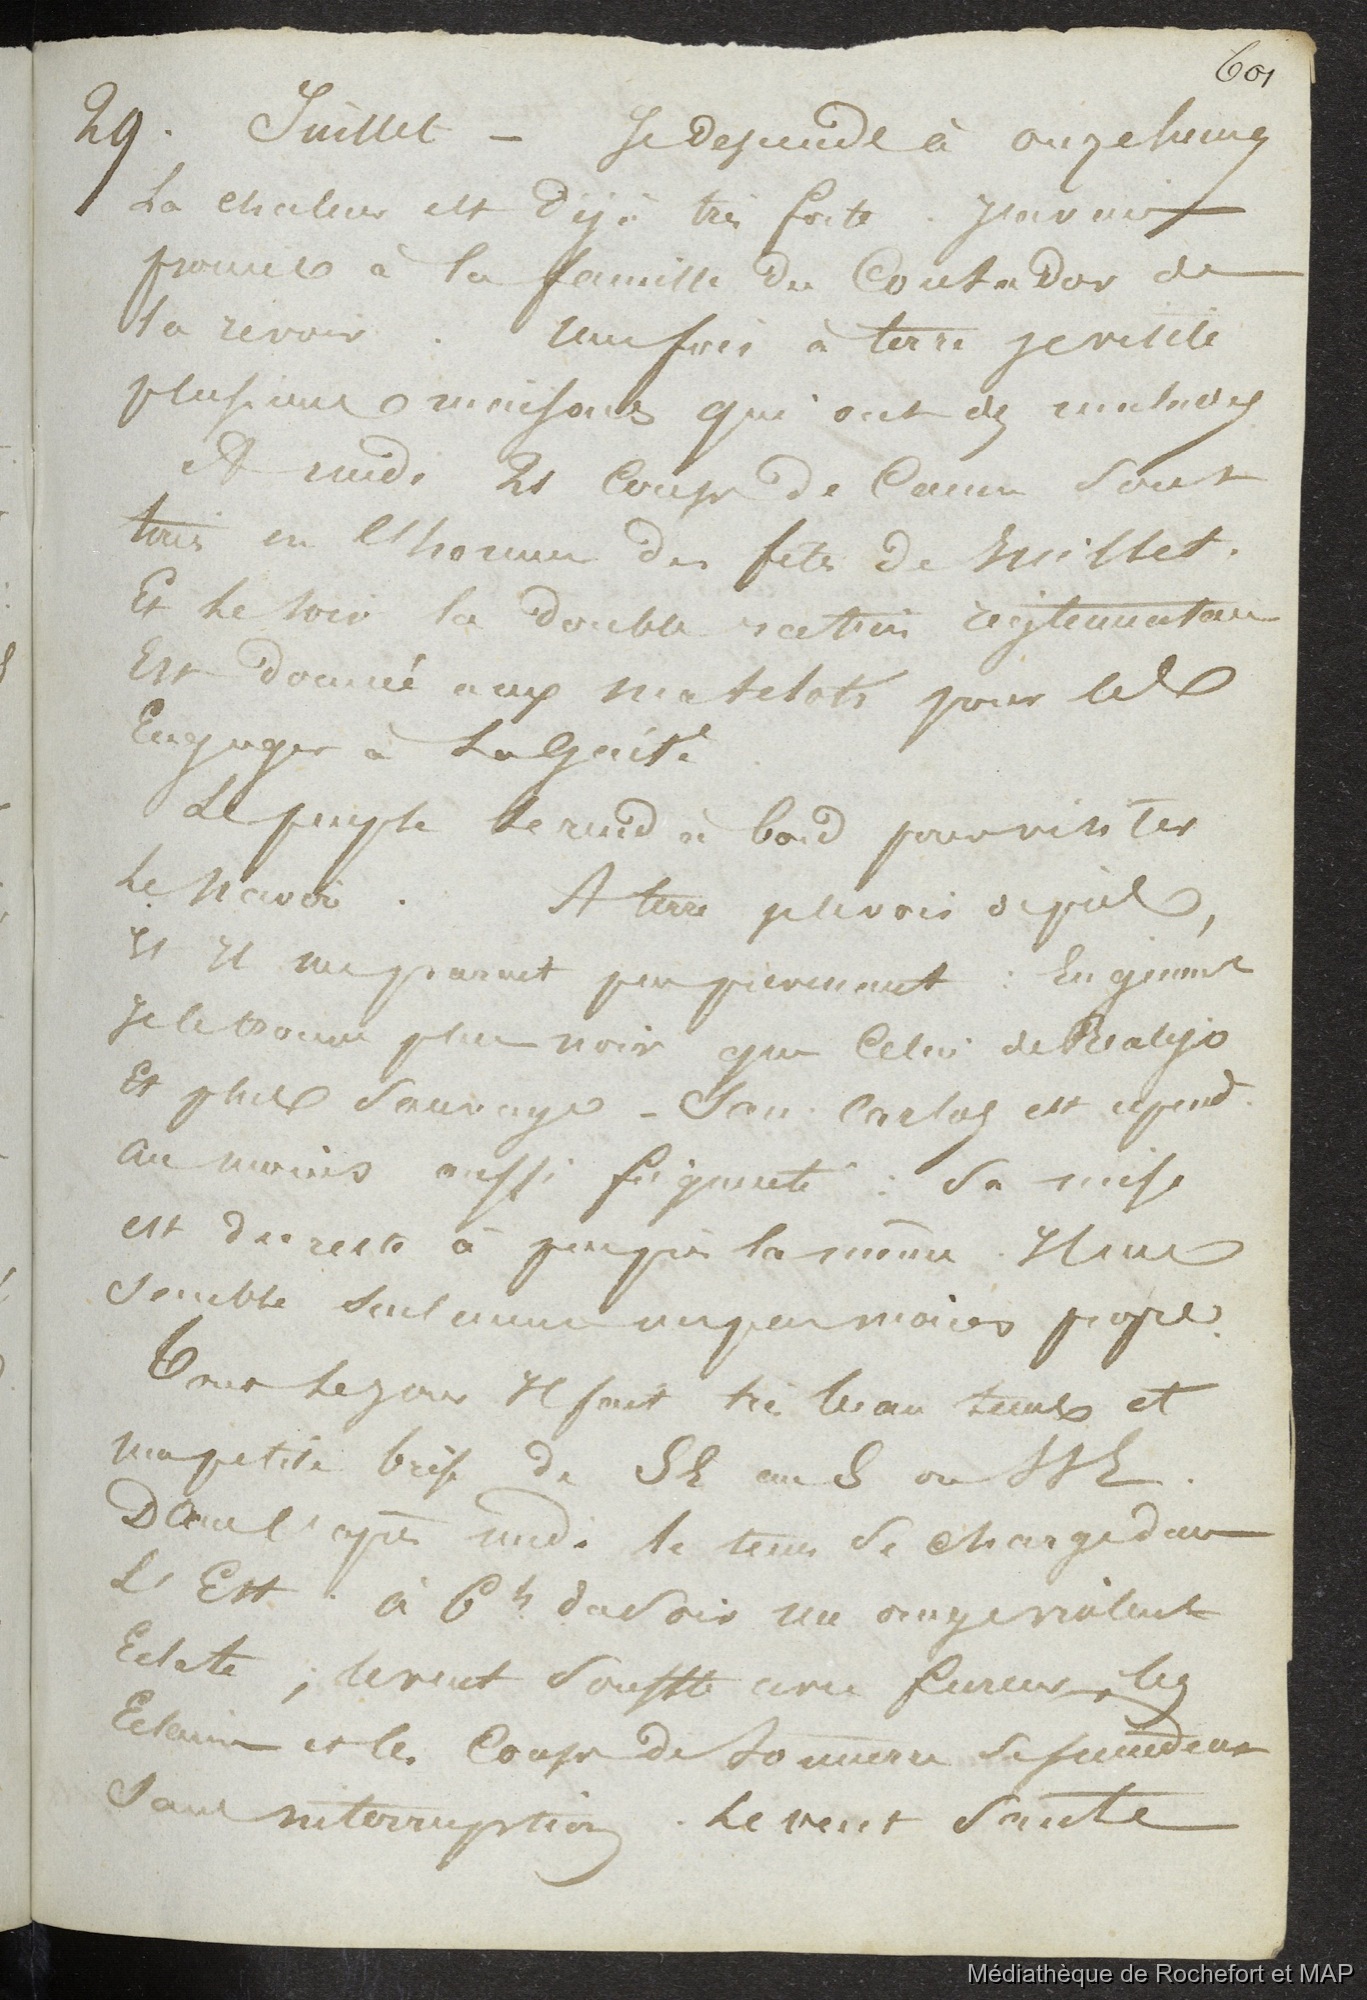 601
29. Juillet – Je descends à onze heures
La chaleur est déjà très forte. J'avais
promis à la famille du Contador de
la revoir. Une fois à terre je visite
plusieurs maisons qui ont des malades
A midi 21 coups de Canon sont
tirés en l'honneur des fêtes de Juillet.
Et le soir la double ration réglementaire
Est donnée aux matelots pour les
Engager à La Gaité
Le peuple se rend à bord pour visiter
Le Navire. A terre je le vois de près,
Et Il me parait peu prévenant : En général
Je le trouve plus noir que Celui de Realejo
Et plus Sauvage – San Carlos est cepend.
au moins aussi fréquenté : Sa mise
est du reste à peu près la même. Il me
semble seulement un peu moins propre.
Tout le jour Il fait très beau tems et
une petite brise de SE au S ou SSE.
Dans l'après midi le tems se charge dans
L'Est. à 6h du Soir un orage violent
Eclate ; le vent Souffle avec fureur, les
Eclairs et les Coups de tonnerre se succèdent
Sans interruption. Le vent Saute